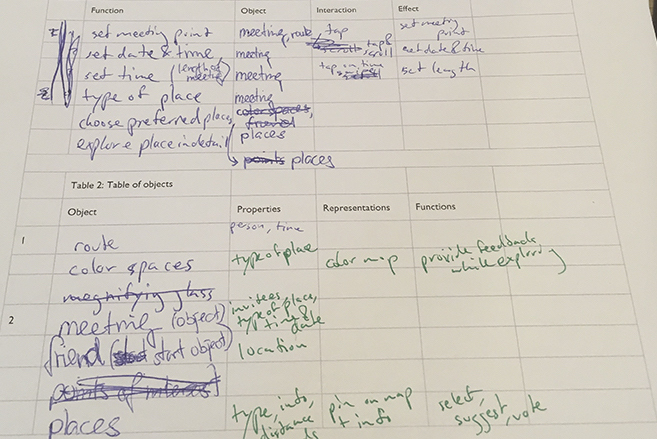 Function Object Interaction Effect
set meeting point meeting, route, tap set meeting point
set date & time meeting tap & scroll set date & time
set time (length of meeting) meeting tap on time set length
type of place meeting
choose preferred places, color spaces, friend
explore place in detail places
points places
Table 2: Table of objects
Object Properties Representations Functions
1 route person, time
color spaces type of place color map provide feedback while exploring
magnifying glass
2 meeting (object) invitees, type of place, time & date
friend (start object) location
points of interest
places type, info, distance pin on map + info select, suggest, vote